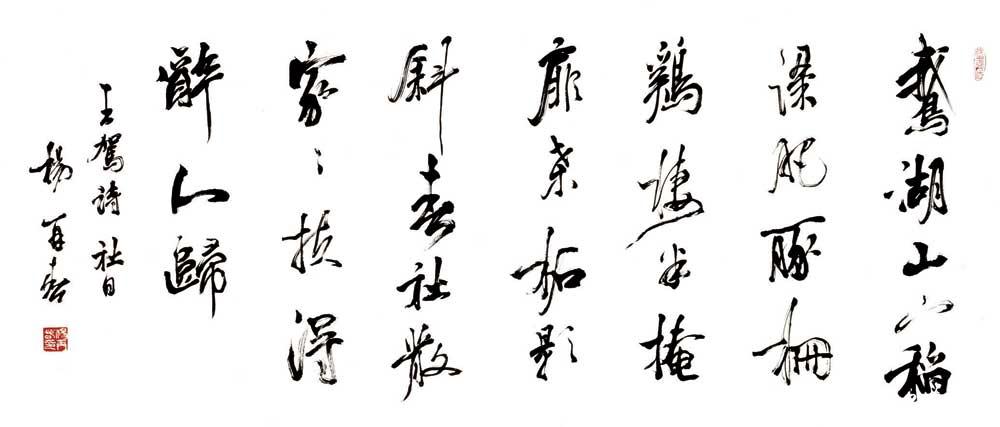 鵞湖山下稻
粱肥豚柵
鷄棲半掩
扉桒柘影
斜春社散
家〻扶得
醉人歸
王駕詩社日
楊再春